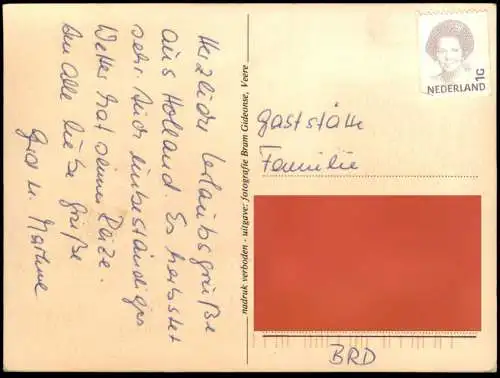 Herzliche Urlaubsgrüße
aus Holland. Es herbstet
sehr. Auch unbeständiges
Wetter hat seinen Reize.
An alle liebe Grüße
Gerd u. Martine
nadruk verboden - uitgave: fotografie Bram Gideonse, Veere
1G
NEDERLAND
Gaststätte
Familie
BRD